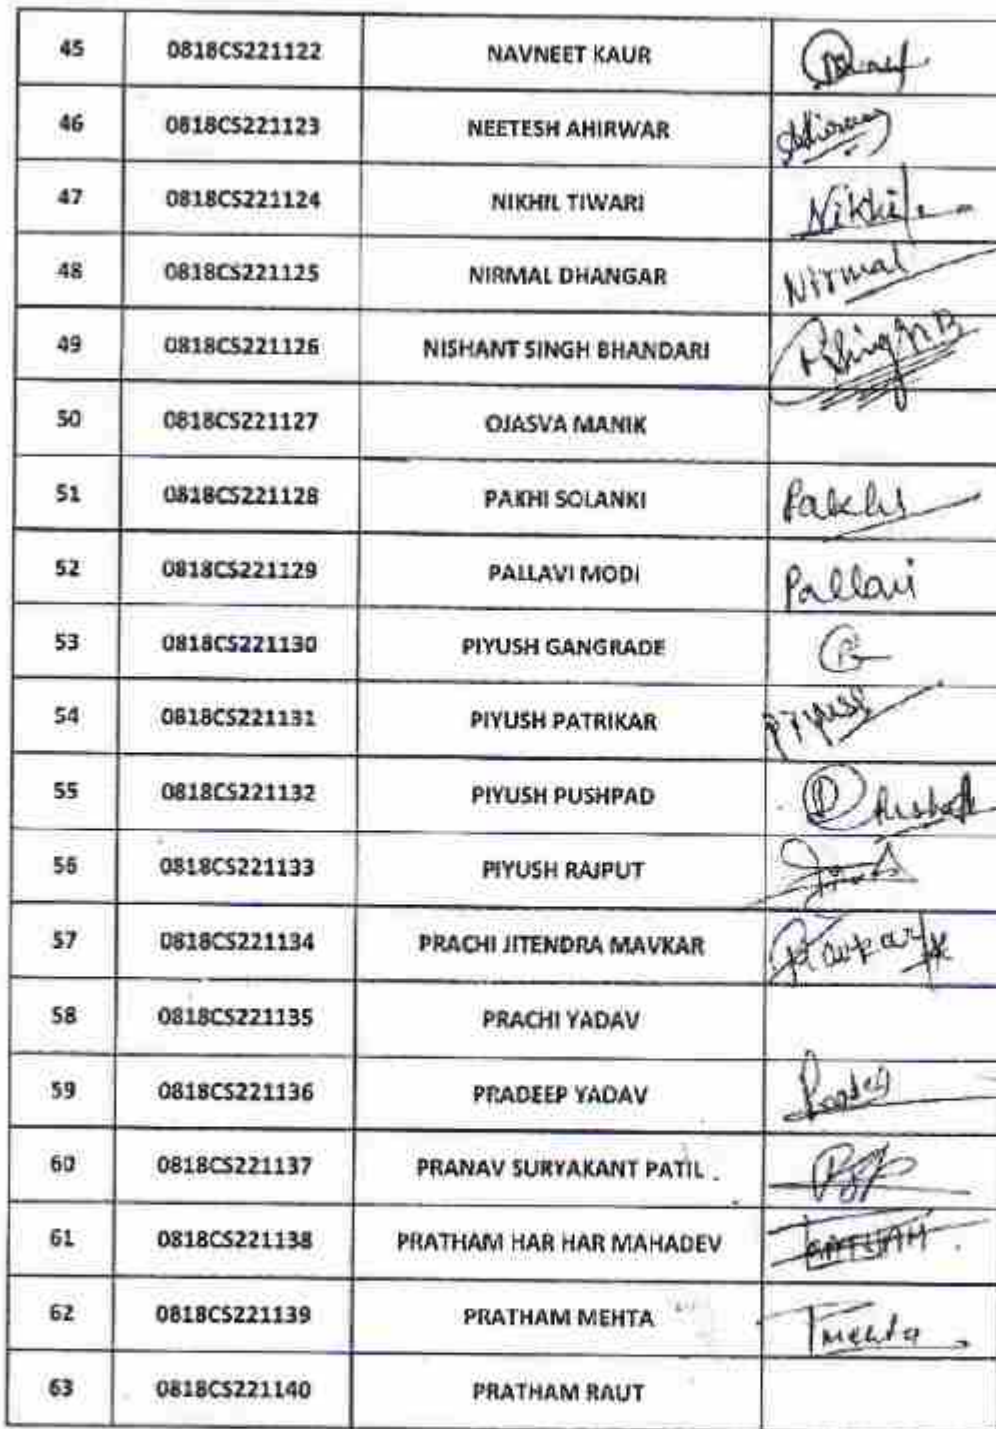 45 0818CS221122 NAVNEET KAUR
46 0818CS221123 NEETESH AHIRWAR Ahirwar
47 0818CS221124 NIKHIL TIWARI Nikhil
48 0818CS221125 NIRMAL DHANGAR Nirmal
49 0818CS221126 NISHANT SINGH BHANDARI
50 0818CS221127 OJASVA MANIK
51 0818CS221128 PAKHI SOLANKI Pakhi
52 0818CS221129 PALLAVI MODI Pallavi
53 0818CS221130 PIYUSH GANGRADE
54 0818CS221131 PIYUSH PATRIKAR Piyush
55 0818CS221132 PIYUSH PUSHPAD
56 0818CS221133 PIYUSH RAJPUT
57 0818CS221134 PRACHI JITENDRA MAVKAR
58 0818CS221135 PRACHI YADAV
59 0818CS221136 PRADEEP YADAV
60 0818CS221137 PRANAV SURYAKANT PATIL
61 0818CS221138 PRATHAM HAR HAR MAHADEV
62 0818CS221139 PRATHAM MEHTA Pmehta
63 0818CS221140 PRATHAM RAUT